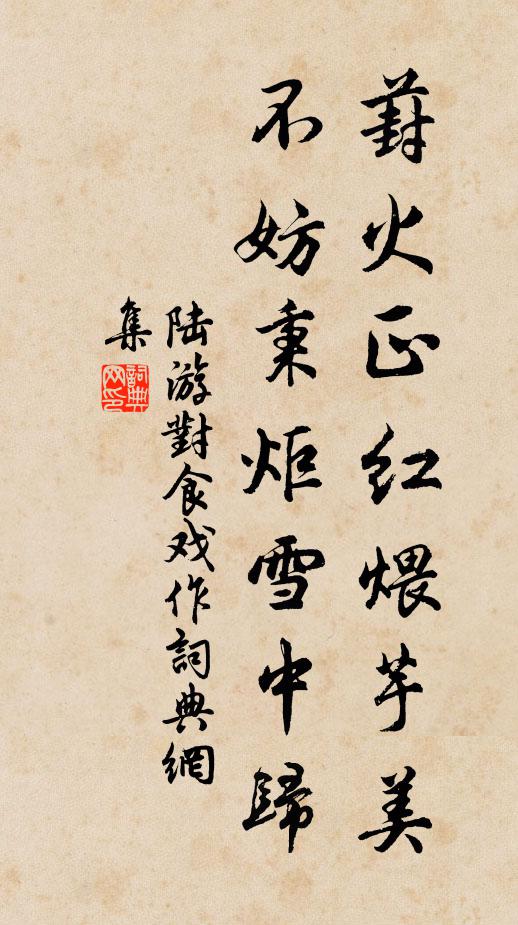 葑火正红煨芋美
不妨秉炬雪中歸
陆游對食戏作詞典網
集
詞典
网印